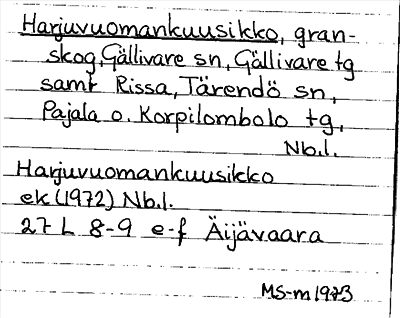 Harjuvuomankuusikko, gran-
skog, Gällivare sn, Gällivare tg
samt Rissa, Tärendö sn,
Pajala o. Korpilombolo tg,
Nb.l.
Harjuvuomankuusikko
ek (1972) Nb.l.
27 L 8-9 e-f Äijävaara
MS-m 1973